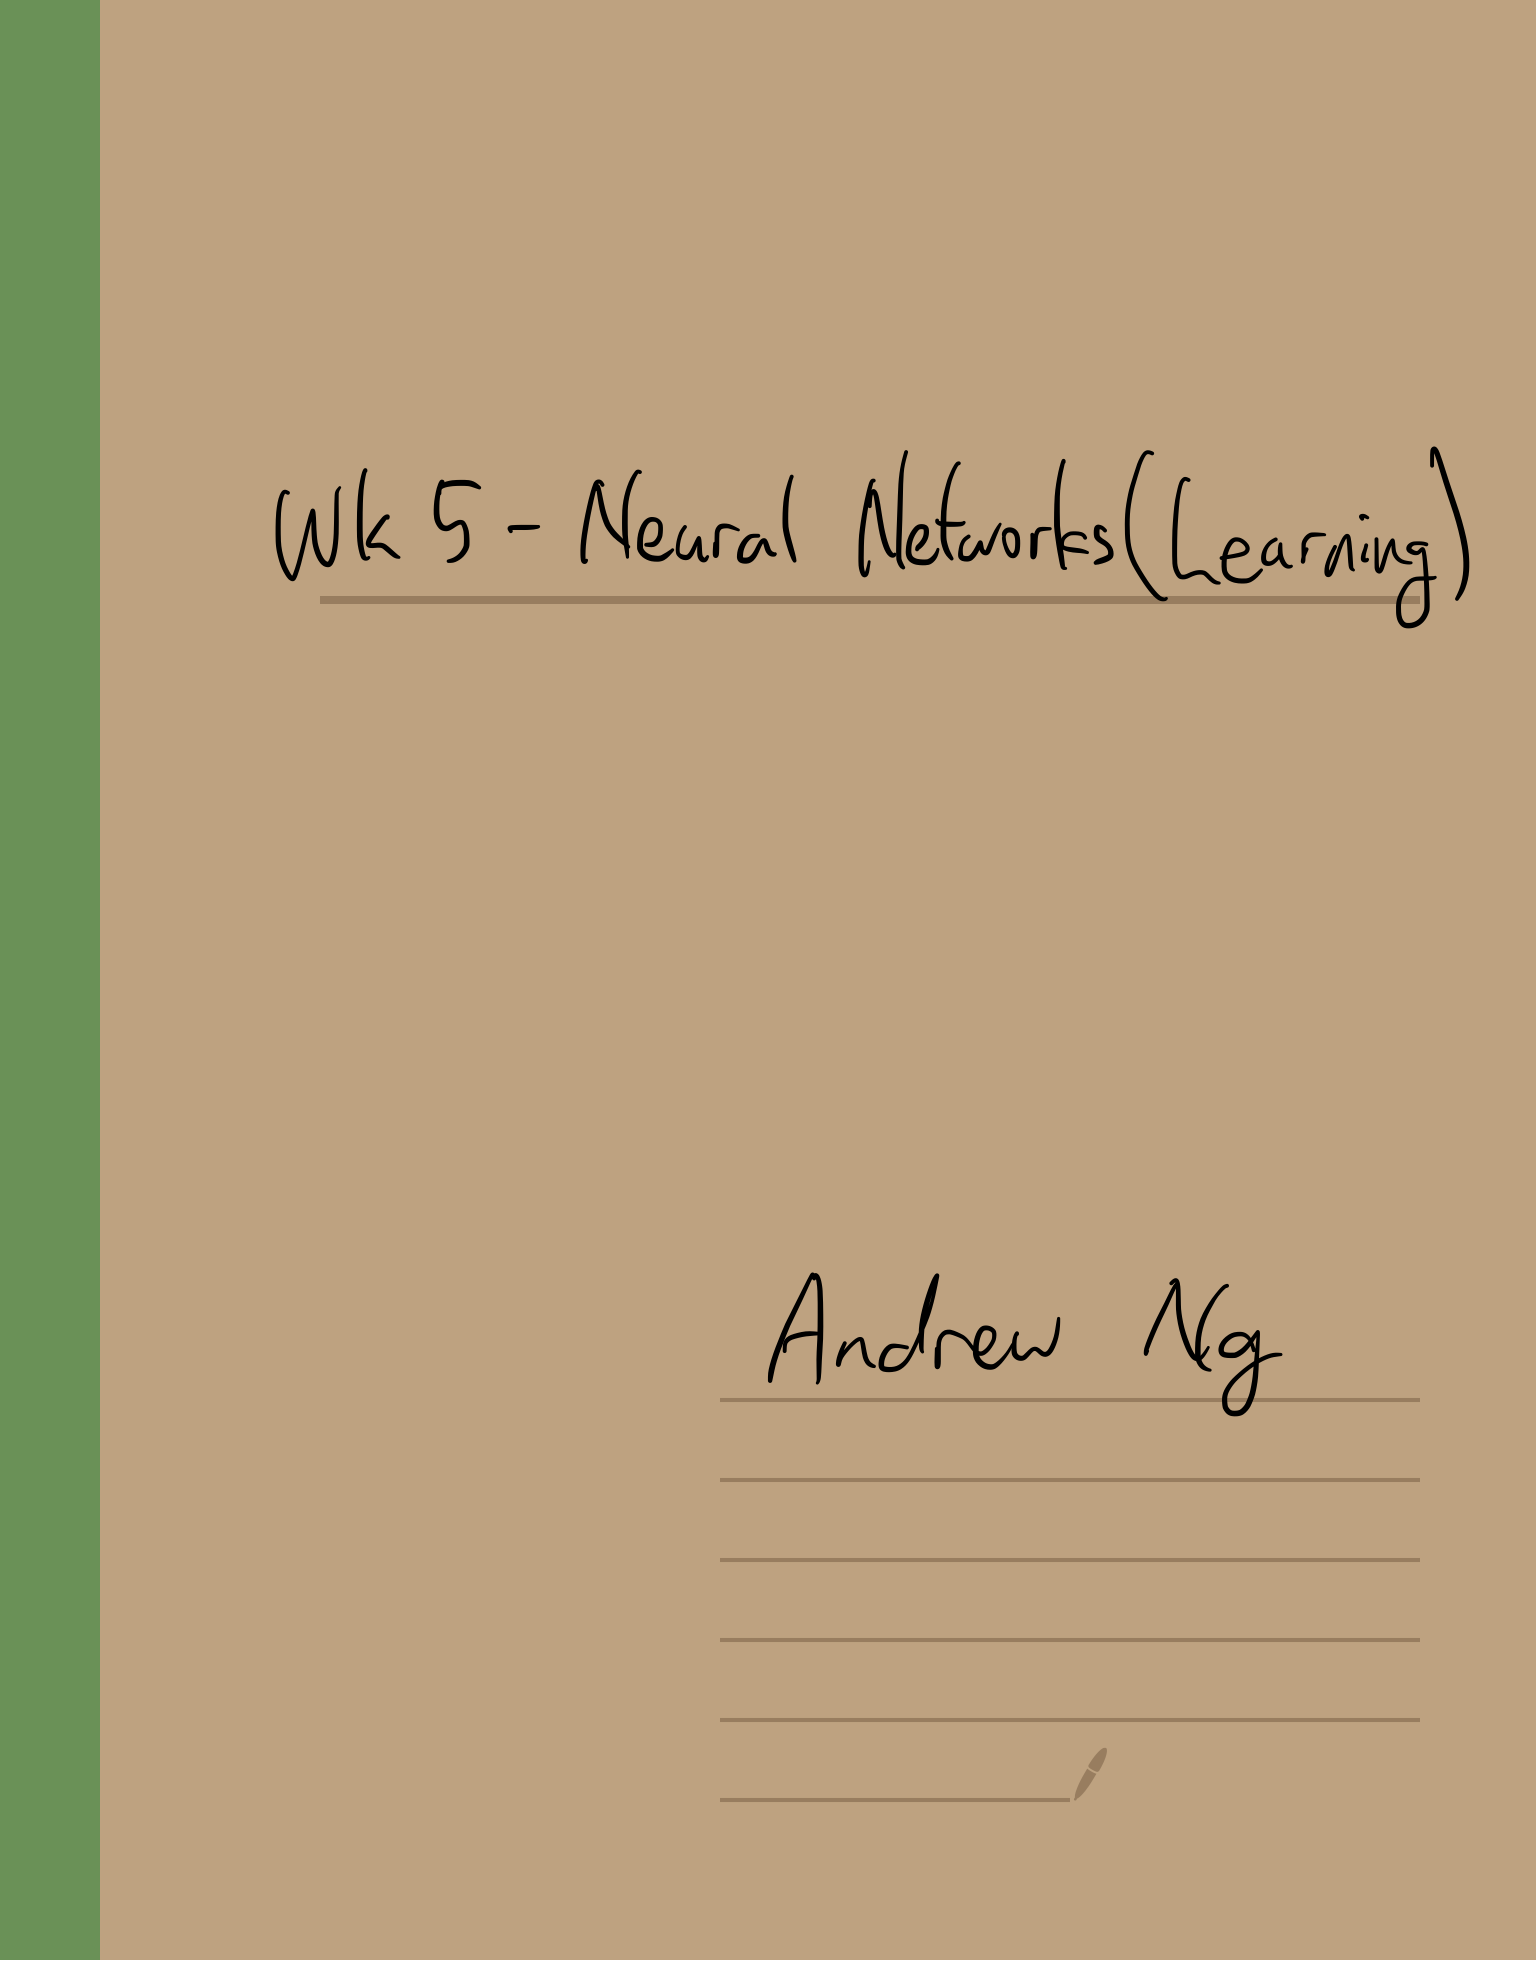 Wk 5 - Neural Networks (Learning)
Andrew Ng